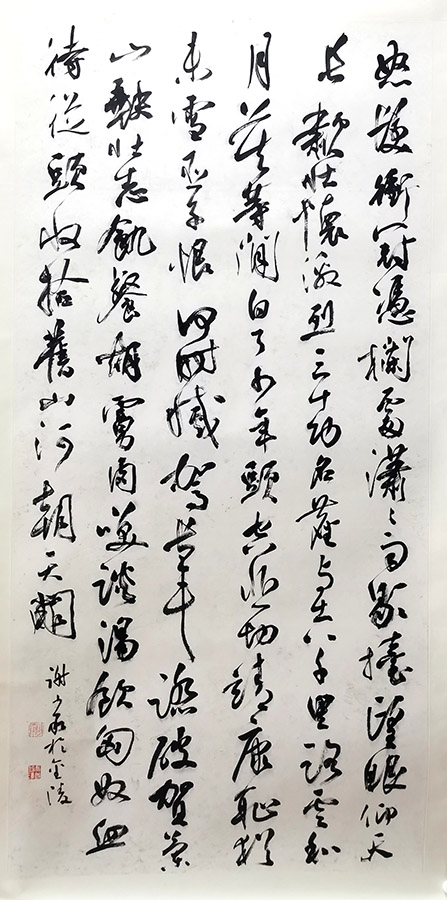 怒髮衝冠憑欄處瀟瀟雨歇擡望眼仰天
長歗壯懷激烈三十功名塵與土八千里路雲和
月莫等閒白了少年頭空悲切靖康恥猶
未雪臣子恨何時滅駕長車踏破賀蘭
山缺壯志飢餐胡虜肉笑談渴飲匈奴血
待從頭收拾舊山河朝天闕
謝少承於金陵